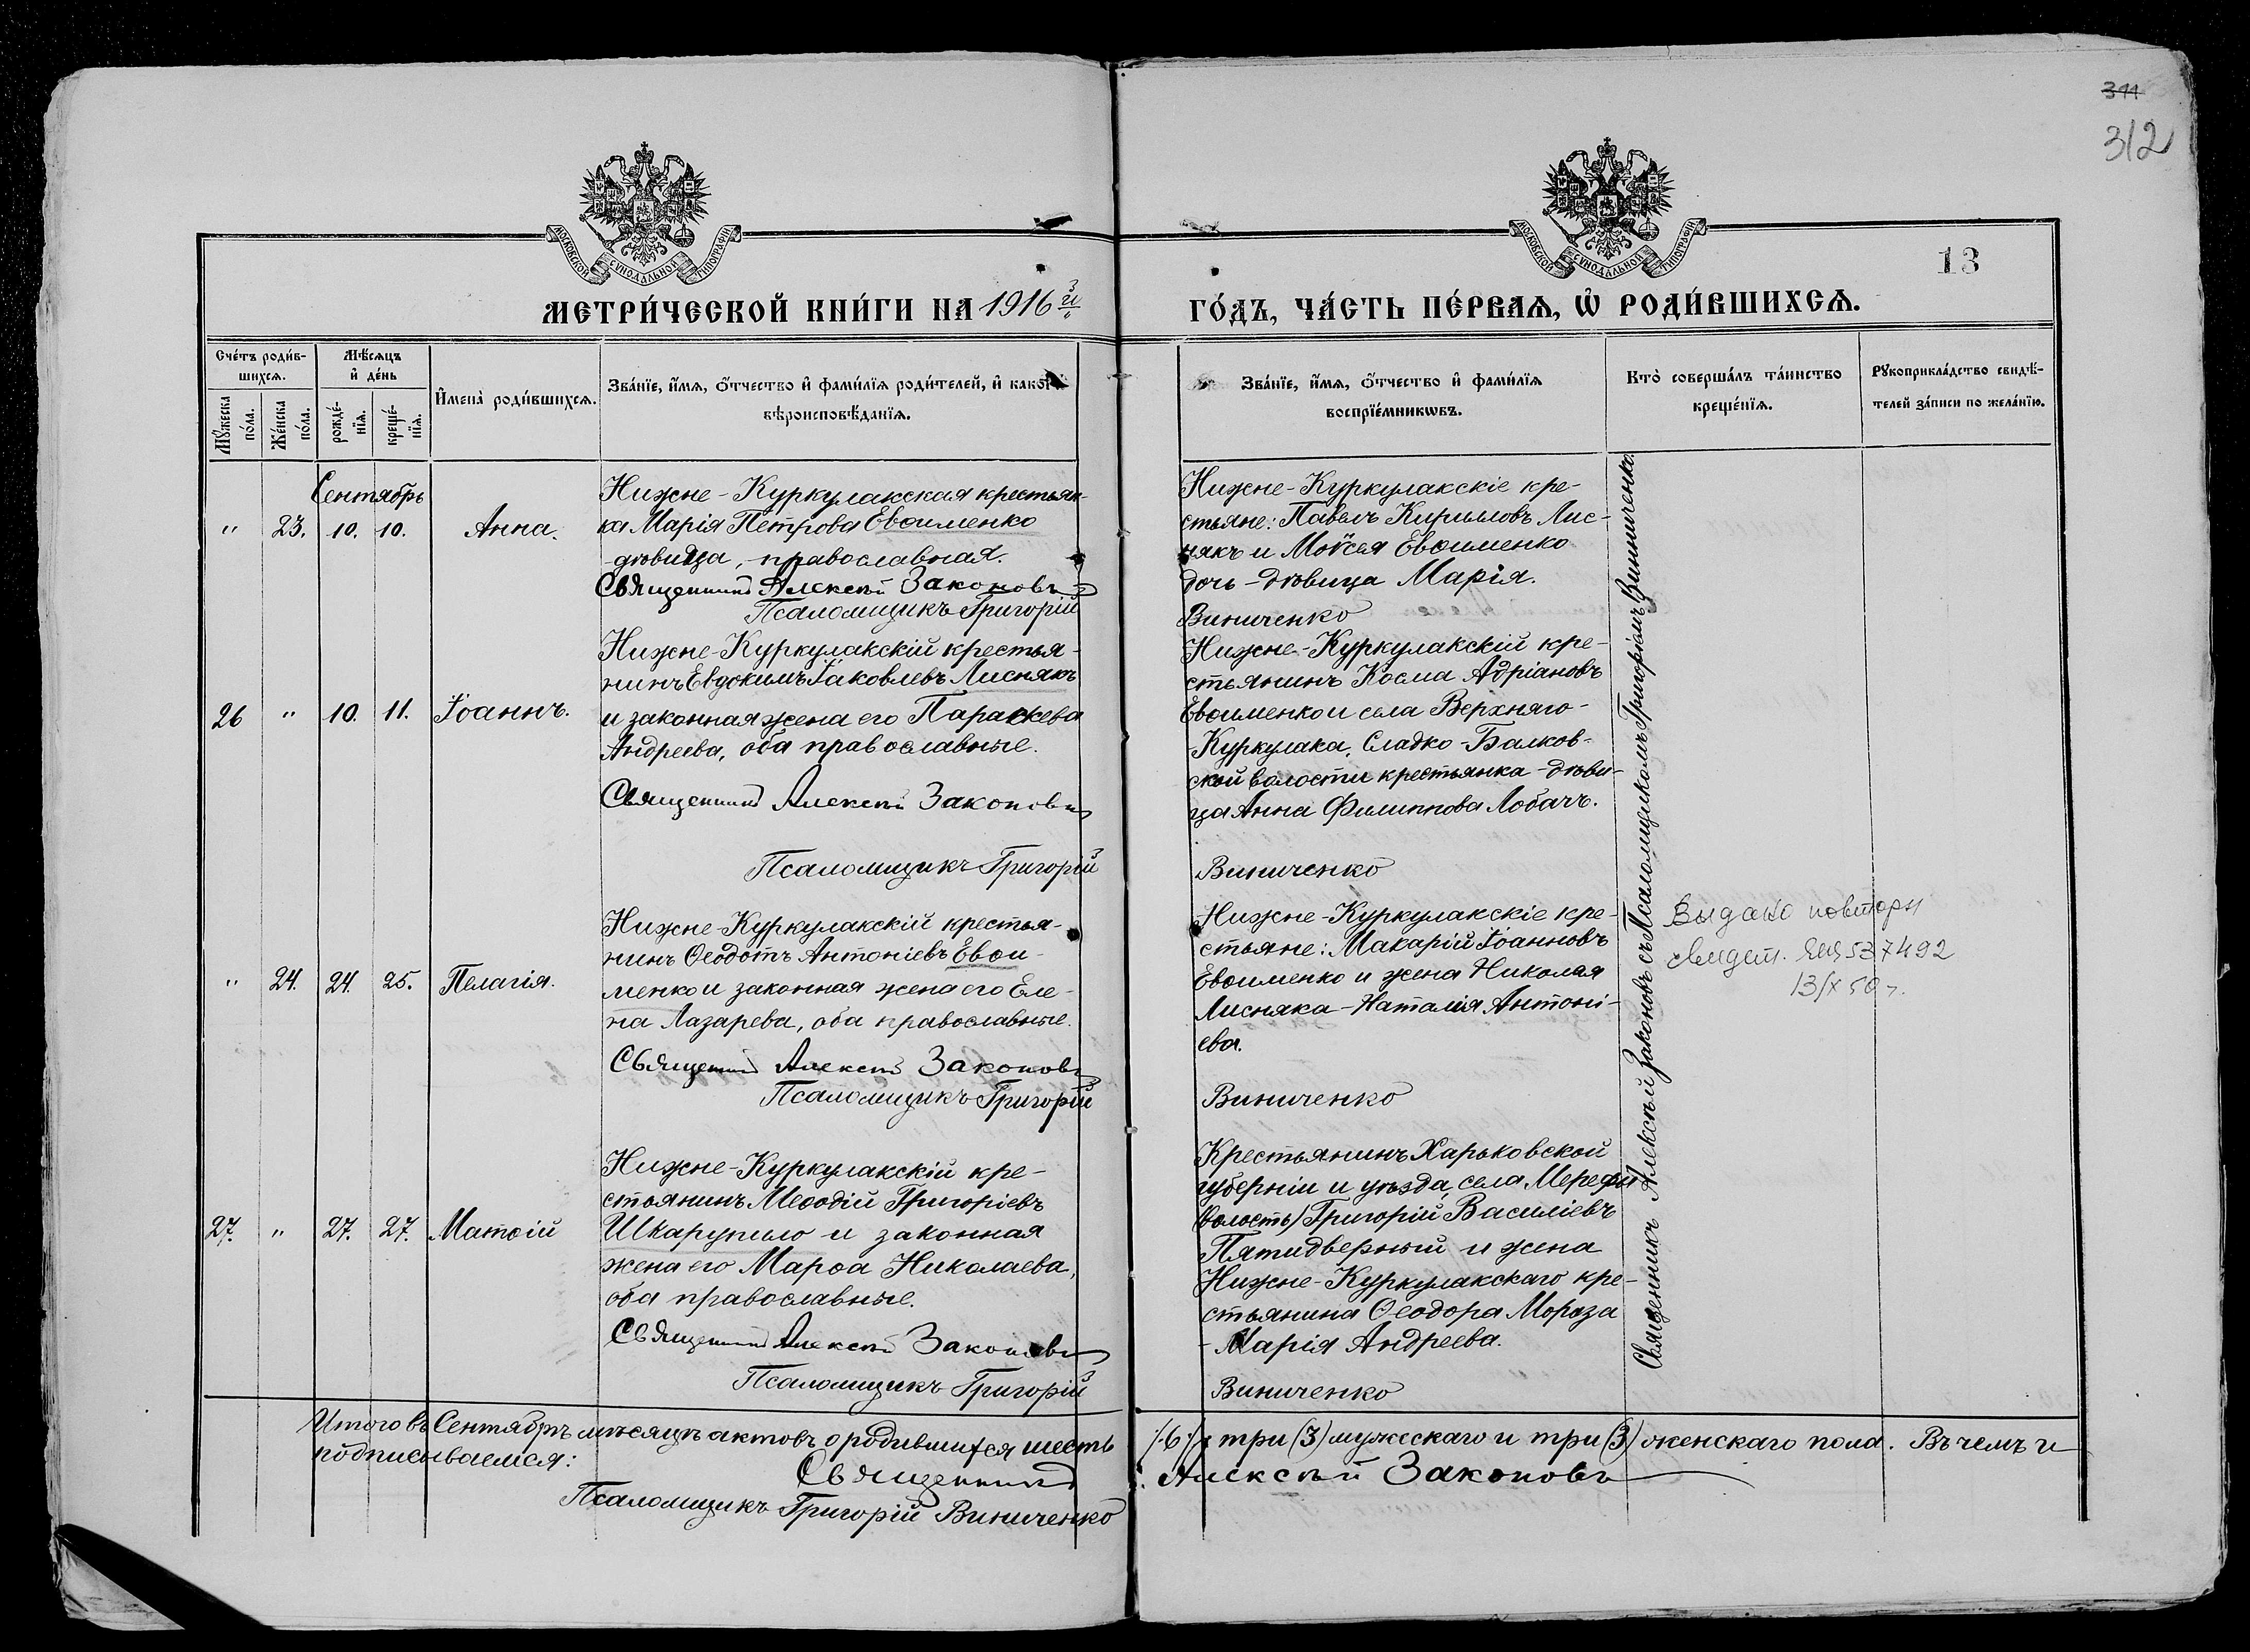 311
312
МОСКОВСКОЙ СѴНОДАЛЬНОЙ ТИПОГРАФІИ
МОСКОВСКОЙ СѴНОДАЛЬНОЙ ТИПОГРАФІИ
13
МЕТРИ́ЧЕСКОЙ КНИ́ГИ НА 1916й
ГО́ДЪ, ЧА́СТЬ ПЕ́РВАЯ, Ѡ РОДИ́ВШИХСѦ.
Сче́тъ роди́в-
шихсѧ.
Мꙋ́жеска по́ла.
Же́нска по́ла.
Мѣ́сѧцъ
и҆ де́нь
рожде́-
нїѧ.
креще́-
нїѧ.
И҆мена̀ роди́вшихсѧ.
Зва́нїе, и҆́мѧ, ѻ҆́тчество и҆ фами́лїѧ роди́телей, и҆ како́гѡ
вѣроисповѣ́данїѧ.
Зва́нїе, и҆́мѧ, ѻ҆́тчество и҆ фами́лїѧ
воспрїе́мникѡвъ.
Кто̀ соверша́лъ та́инство
креще́нїѧ.
Рꙋкоприкла́дство свидѣ́-
телей за́писи по жела́нїю.
Сентябрь
" 23. 10. 10. Анна.
Нижне-Куркулакская крестьян-
ка Марія Петрова Евѳименко
дѣвица, православная.
Священникъ Алексѣй Законовъ
Псаломщикъ Григорій
Нижне-Куркулакскіе кре-
стьяне: Павелъ Кирилловъ Лис-
някъ и Моѵсея Евѳименко
дочь-дѣвица Марія.
Виниченко
26 " 10. 11. Іоаннъ.
Нижне-Куркулакскій крестья-
нинъ Евдокимъ Іаковлевъ Лиснякъ
и законная жена его Параскева
Андреева, оба православные.
Священникъ Алексѣй Законовъ
Псаломщикъ Григорій
Нижне-Куркулакскій кре-
стьянинъ Косма Адріановъ
Евѳименко и села Верхняго-
-Куркулака, Сладко-Балков-
ской волости крестьянка-дѣви-
ца Анна Филиппова Лобачъ.
Виниченко
" 24. 24. 25. Пелагія.
Нижне-Куркулакскій крестья-
нинъ Ѳеодотъ Антоніевъ Евѳи-
менко и законная жена его Еле-
на Лазарева, оба православные.
Священникъ Алексѣй Законовъ
Псаломщикъ Григорій
Нижне-Куркулакскіе кре-
стьяне: Макарій Іоанновъ
Евѳименко и жена Николая
Лисняка-Наталія Антоні-
ева.
Виниченко
Выдано повторн
свидет. 537492
13/X 50 г.
27. " 27. 27. Матѳій
Нижне-Куркулакскій кре-
стьянинъ Меѳодій Григоріевъ
Шкарупило и законная
жена его Марѳа Николаева,
оба православные.
Священникъ Алексѣй Законовъ
Псаломщикъ Григорій
Крестьянинъ Харьковской
губерніи и уѣзда, села Мерефы
(волость) Григорій Василіевъ
Пятидверный и жена
Нижне-Куркулакскаго кре-
стьянина Ѳеодора Мороза
-Марія Андреева.
Виниченко
Священникъ Алексѣй Законовъ съ Псаломщикомъ Григоріемъ Виниченко.
Итого въ Сентябрѣ мѣсяцѣ актовъ о родившихся шесть /6/; три (3) мужескаго и три (3) женскаго пола. Въ чемъ и
подписываемся:
Священникъ Алексѣй Законовъ
Псаломщикъ Григорій Виниченко